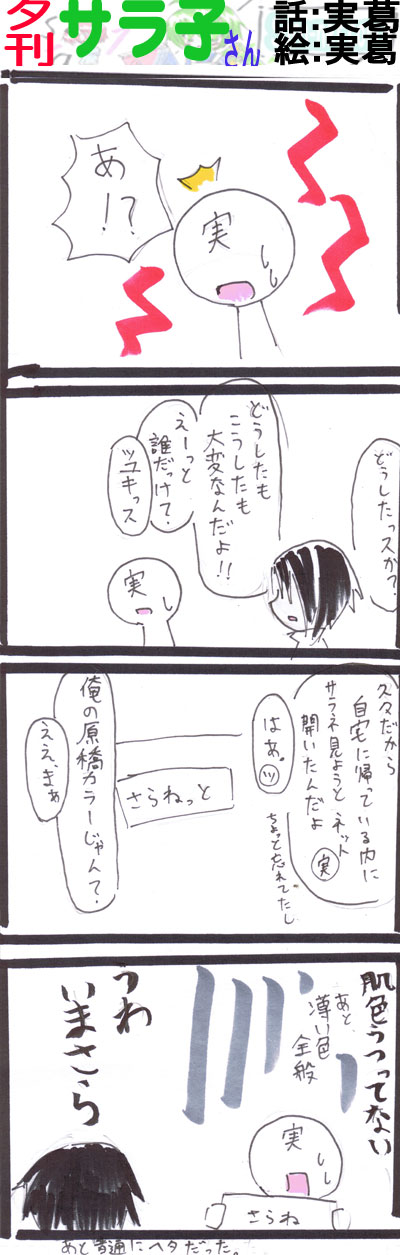 夕刊
サラ子さん
話:実葛
絵:実葛
あ!?
実
どうしたっスか?
どうしたも
こうしたも
大変なんだよ!!
えーっと
誰だっけて?
ツユキっス
実
久々だから
自宅に帰っている内に
サラネ見ようとネット
開いたんだよ
実
はあ。
ツ
ちょっと忘れてたし
さらねっと
俺の原稿カラーじゃんて?
ええ、まぁ
肌色うつってない
あと、
薄い色
全般
実
さらね
うわ
いまさら
あと普通にヘタだった。